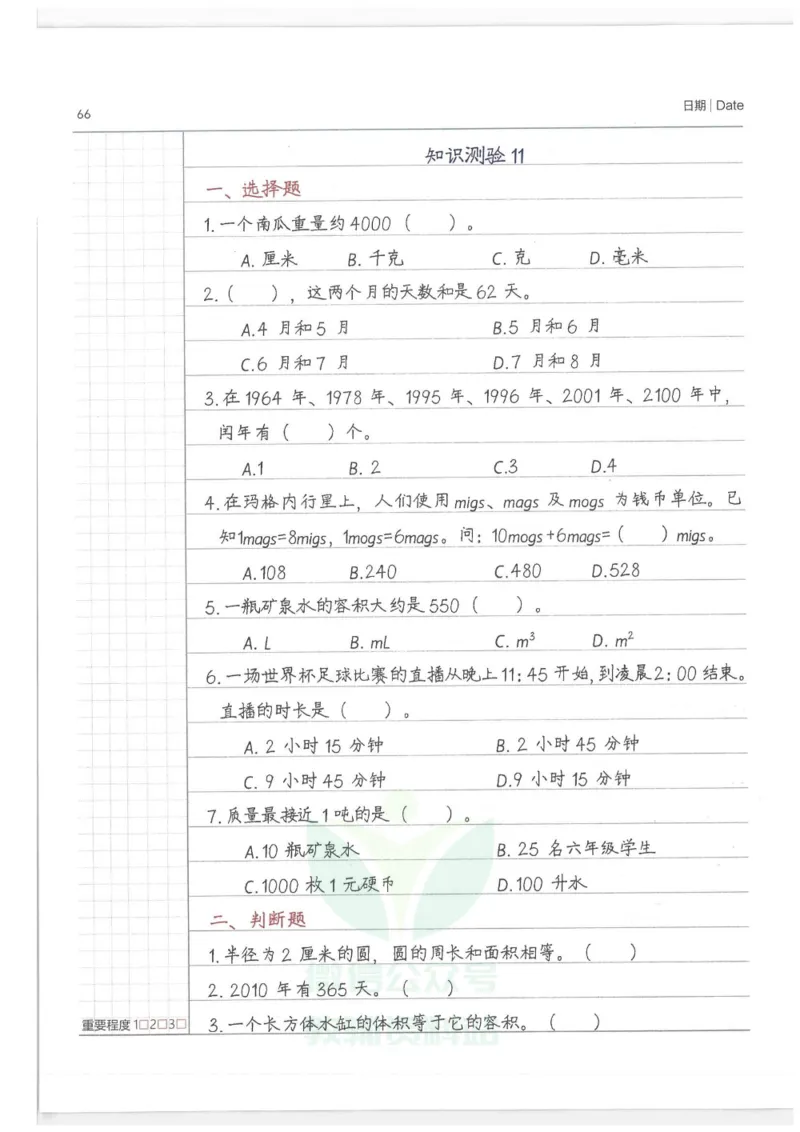 66
日期 | Date
知识测验 11
一、选择题
1.一个南瓜重量约4000（　　）。
A. 厘米　B. 千克　C. 克　D. 毫米
2.（　　），这两个月的天数和是62 天。
A.4 月和5 月　B.5 月和6 月
C.6 月和7 月　D.7 月和8 月
3.在1964 年、1978 年、1995 年、1996 年、2001 年、2100 年中，
闰年有（　　）个。
A.1　B. 2　C.3　D.4
4.在玛格内行星上，人们使用 migs、mags 及 mogs 为钱币单位。已
知1mags=8migs，1mogs=6mags。问：10mogs+6mags=（　　）migs。
A.108　B.240　C.480　D.528
5.一瓶矿泉水的容积大约是550（　　）。
A. L　B. mL　C. m³　D. m²
6.一场世界杯足球比赛的直播从晚上11：45 开始，到凌晨2：00 结束。
直播的时长是（　　）。
A. 2 小时 15 分钟　B. 2 小时 45 分钟
C. 9 小时 45 分钟　D.9 小时 15 分钟
7.质量最接近1吨的是（　　）。
A.10 瓶矿泉水　B. 25 名六年级学生
C.1000 枚 1 元硬币　D.100 升水
二、判断题
1.半径为2 厘米的圆，圆的周长和面积相等。（　　）
2. 2010 年有365 天。（　　）
3.一个长方体水缸的体积等于它的容积。（　　）
重要程度 1□2□3□
微信公众号
教辅资料站